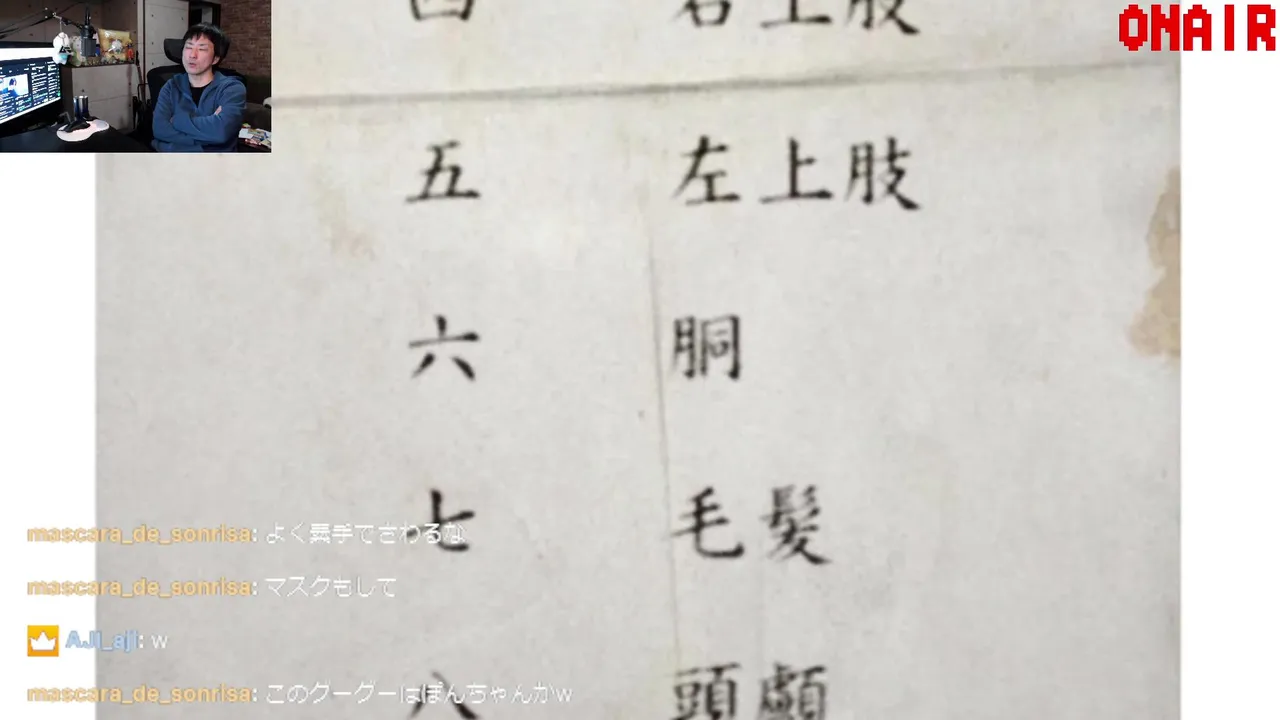 ONAIR
四 右上肢
五 左上肢
六 胴
七 毛髪
八 頭顱
mascara_de_sonrisa: よく素手でさわるな
mascara_de_sonrisa: マスクもして
AJI_aji: w
mascara_de_sonrisa: このグーグーはぽんちゃんかw